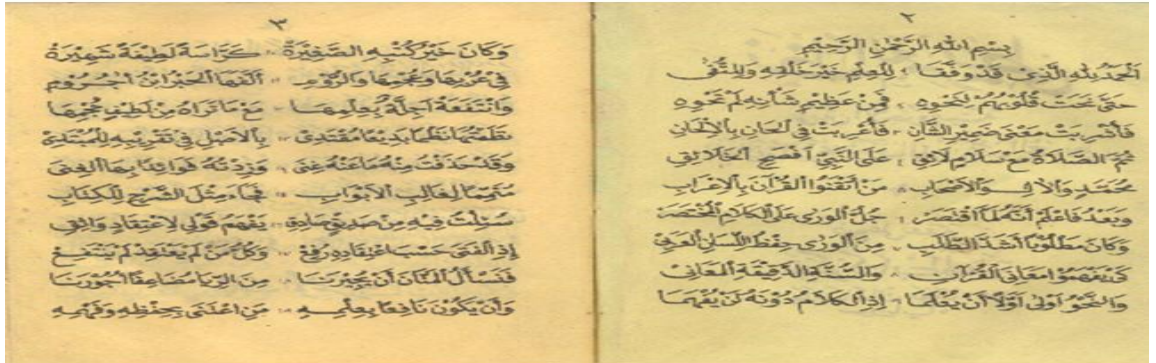 ٢
بِسْمِ اللهِ الرَّحْمٰنِ الرَّحِيْمِ
اَلْحَمْدُ لِلّٰهِ الَّذِى قَدْ وَفَّقَا ؛ لِلْعِلْمِ خَيْرَ خَلْقِهِ وَلِلتُّقَى
حَتَّى نَحَتْ قُلُوْبُهُمْ لِنَحْوِهِ ؛ فَمِنْ عَظِيْمِ شَأْنِهِ لَمْ تَحْوِهِ
فَأُشْرِبَتْ مَعْنَى ضَمِيْرِ الشَّانِ ؛ فَأُعْرِبَتْ فِى اَلْحَانِ بِالْاَلْحَانِ
ثُمَّ الصَّلَاةُ مَعَ سَلَامٍ لَائِقِ ؛ عَلَى النَّبِيِّ اَفْصَحِ الْخَلَائِقِ
مُحَمَّدٍ وَالْاٰلِ وَالْاَصْحَابِ ؛ مَنْ اَتْقَنُوا الْقُرْآنَ بِالْاِعْرَابِ
وَبَعْدُ فَاعْلَمْ اَنَّهُ لَمَّا اقْتَصَرْ ؛ جُلُّ الْوَرَى عَلَى الْكَلَامِ الْمُخْتَصَرْ
وَكَانَ مَطْلُوْبًا اَشَدَّ الطَّلَبِ ؛ مِنَ الْوَرَى حِفْظُ اللِّسَانِ الْعَرَبِيْ
كَىْ يَفْهَمُوْا مَعَانِىَ الْقُرْآنِ ؛ وَالسُّنَّةِ الدَّقِيْقَةِ الْمَعَانِى
وَالنَّحْوُ اَوْلَى اَوَّلًا اَنْ يُعْلَمَا ؛ اِذِ الْكَلَامُ دُوْنَهُ لَنْ يُفْهَمَا
٣
وَكَانَ خَيْرُ كُتْبِهِ الصَّغِيْرَةْ ؛ كُرَّاسَةً لَطِيْفَةً شَهِيْرَةْ
فِى عُرْبِهَا وَعُجْمِهَا وَالرُّوْمِ ؛ اَلَّفَهَا الْحَبْرُ ابْنُ اٰجُرُّوْمِ
وَانْتَفَعَتْ اَجِلَّةٌ بِعِلْمِهَا ؛ مَعْ مَا تَرَاهُ مِنْ لَطِيْفِ حَجْمِهَا
نَظَمْتُهَا نَظْمًا بَدِيْعًا مُقْتَدِىْ ؛ بِالْاَصْلِ فِى تَقْرِيْبِهِ لِلْمُبْتَدِىْ
وَقَدْ حَذَفْتُ مِنْهُ مَا عَنْهُ غِنَى ؛ وَزِدْتُهُ فَوَائِدًا بِهَا الْغِنَى
مُتَمِّمًا لِغَالِبِ الْاَبْوَابِ ؛ فَجَاءَ مِثْلَ الشَّرْحِ لِلْكِتَابِ
سُئِلْتُ فِيْهِ مِنْ صَدِيْقٍ صَادِقِ ؛ يَفْهَمُ قَوْلِى لِاعْتِقَادٍ وَاثِقِ
اِذِ الْفَتَى حَسْبَ اعْتِقَادِهِ رُفِعْ ؛ وَكُلُّ مَنْ لَمْ يَعْتَقِدْ لَمْ يَنْتَفِعْ
فَنَسْأَلُ الْمَنَّانَ اَنْ يُجِيْرَنَا ؛ مِنَ الرِّيَا مُضَاعِفًا اُجُوْرَنَا
وَاَنْ يَكُوْنَ نَافِعًا بِعِلْمِهِ ؛ مَنِ اعْتَنَى بِحِفْظِهِ وَفَهْمِهِ